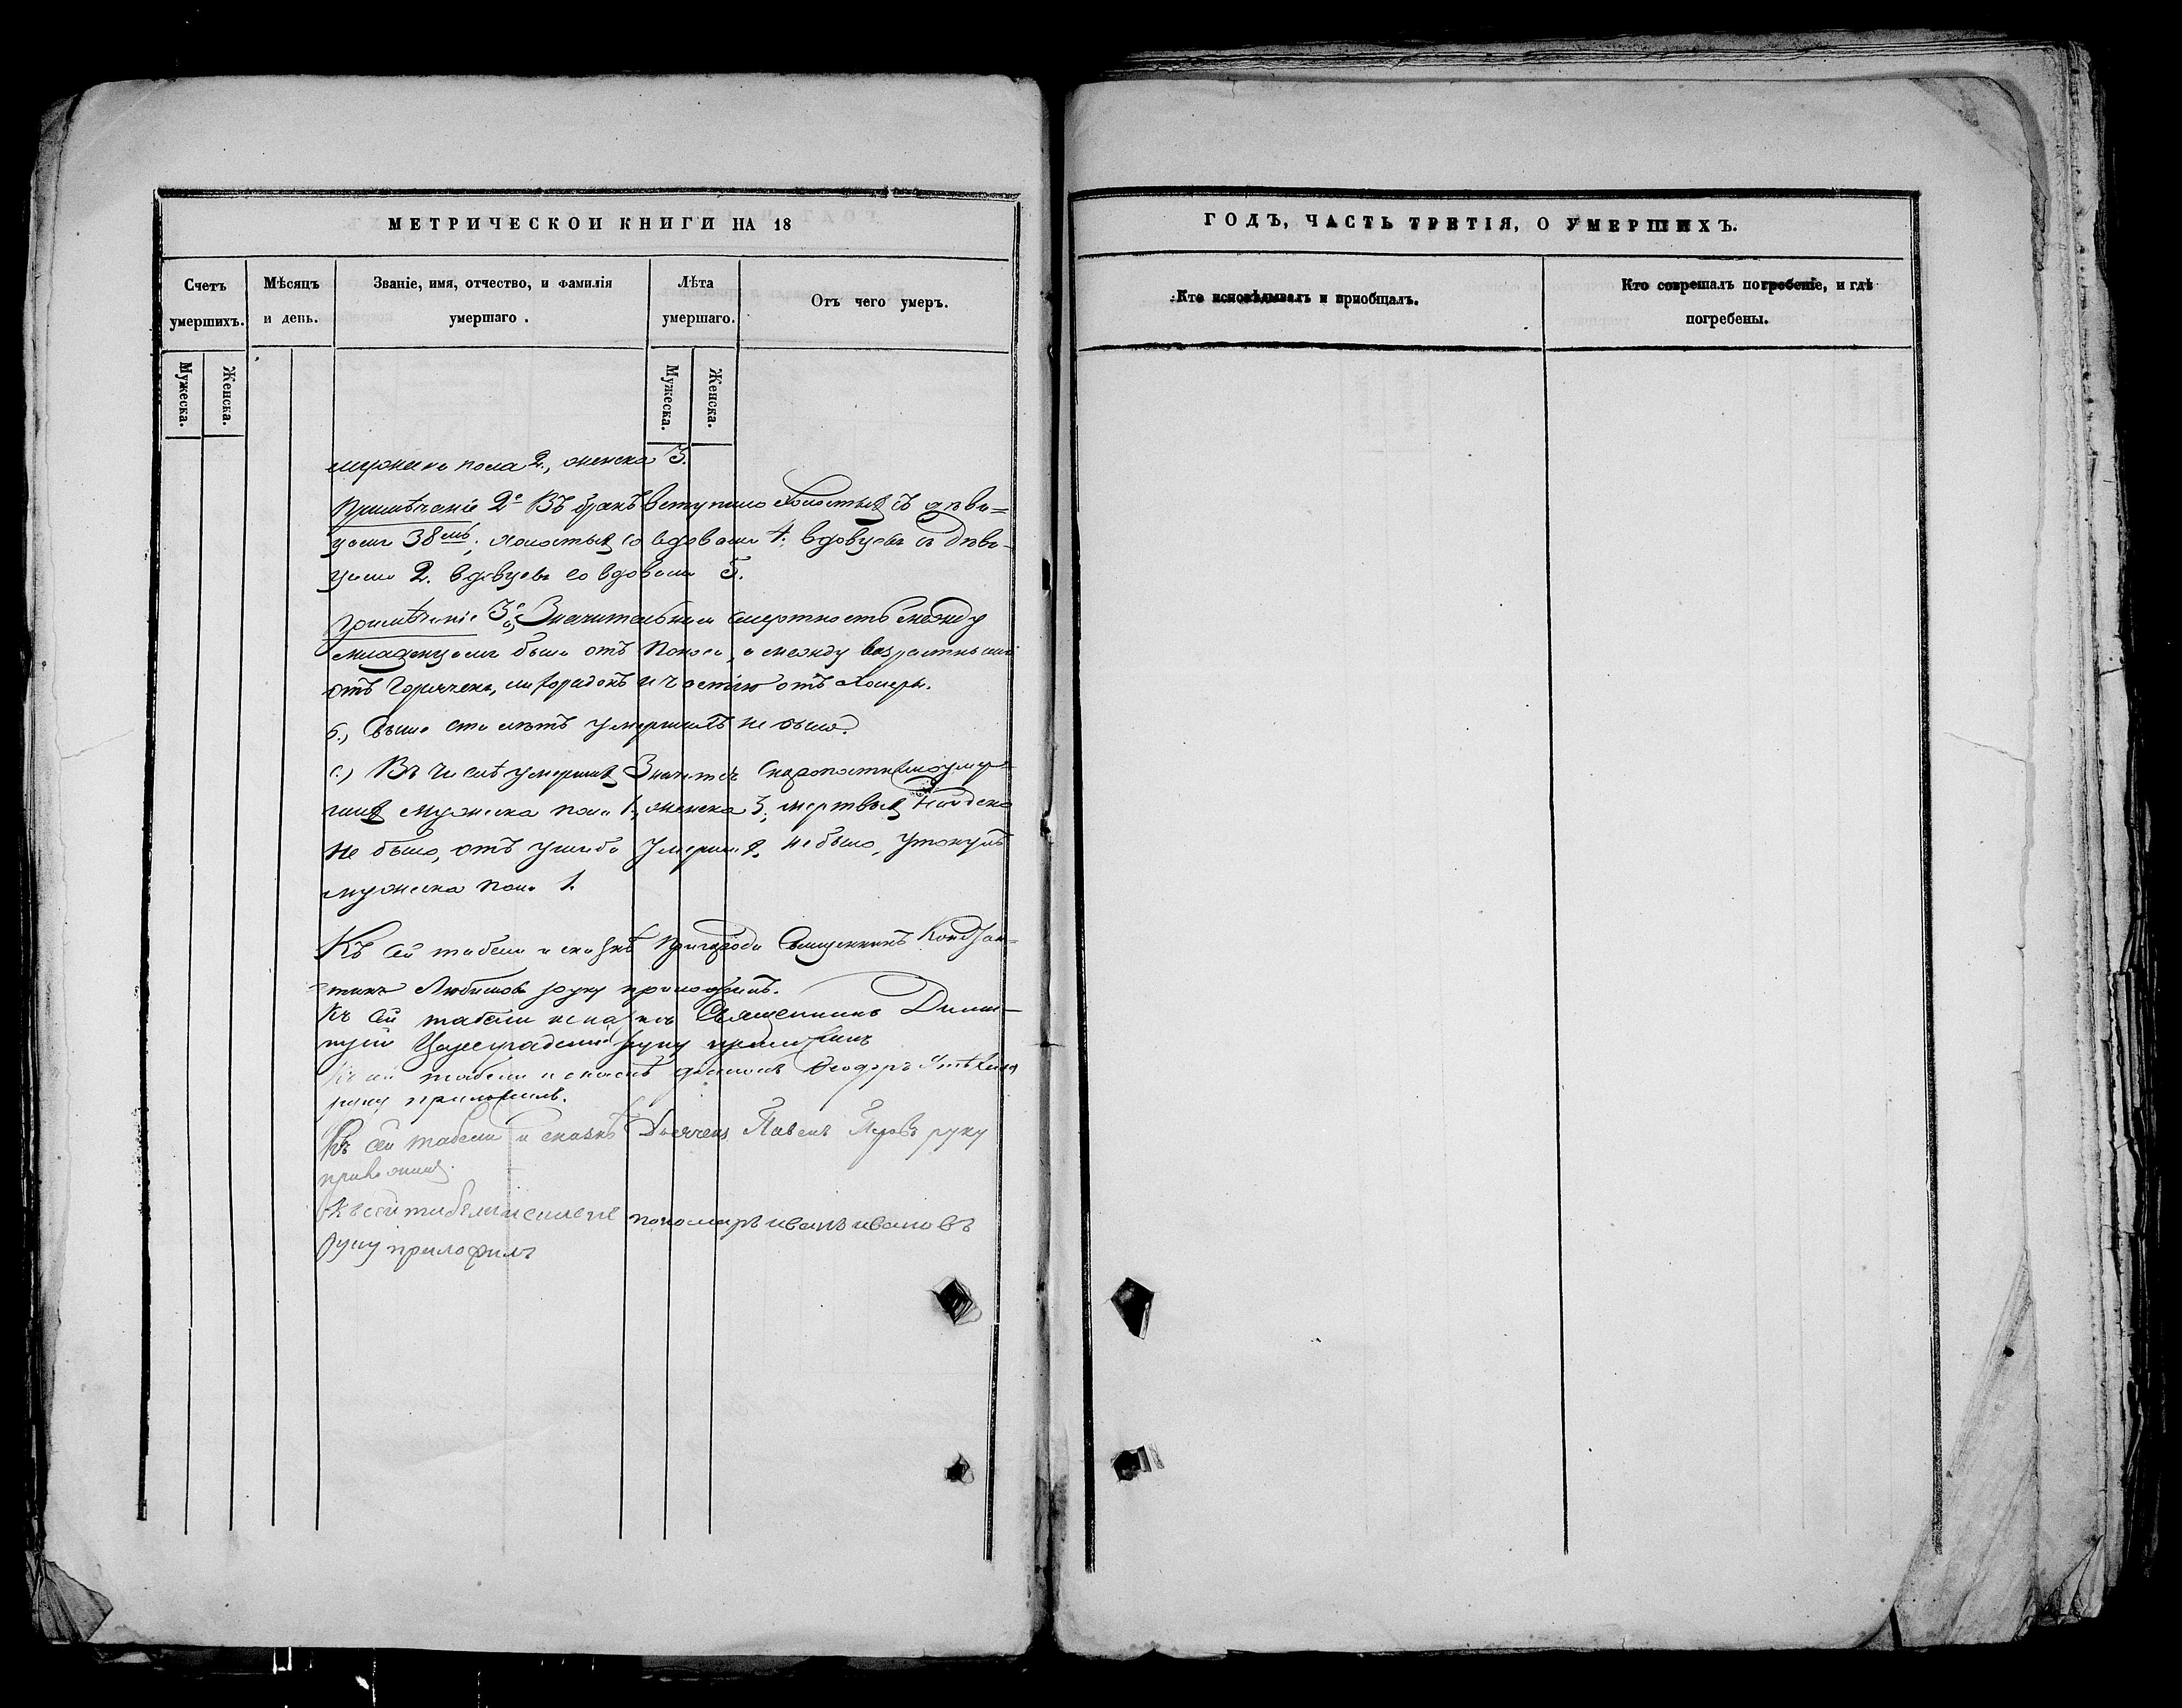 МЕТРИЧЕСКОИ КНИГИ НА 18
Счетъ умершихъ.
Мѣсяцъ и день.
Званіе, имя, отчество, и фамилія умершаго .
Лѣта умершаго.
Отъ чего умеръ.
Мужеска.
Женска.
Мужеска.
Женска.
мужеска пола 2., женска 3.
Примѣчаніе 2е Въ бракъ вступило холостыхъ съ дѣви=
цами 38мь; холостыхъ со вдовами 4. вдовцевъ съ дѣви-
цами 2. вдовцевъ со вдовами 5.
Примѣчаніе 3е, Значительная смертность между
младенцами была отъ поноса, а между возрастными
отъ Горячекъ, лихорадокъ и частію отъ холеры.
б.) Свыше ста лѣтъ умершихъ не было.
с.) Въ числѣ умершихъ Значится скоропостижно умер=
шихъ мужеска пола 1., женска 3, мертвыхъ найдено
не было, отъ ушиба умершихъ не было, утонулъ
мужеска пола 1.
Къ сей табели и сказкѣ Священникъ Констан=
тинъ Любимовъ руку приложилъ.
Къ сей табели и сказкѣ Священникъ Дими-
трій Цареградскій руку приложилъ
Къ сей табели и сказкѣ діаконъ Ѳеодоръ
руку приложилъ.
Къ сей табели и сказкѣ Дьячекъ Павелъ руку
приложилъ.
Къ сей табели и сказке пономарь иванъ ивановъ
руку приложилъ
ГОДЪ, ЧАСТЬ ТРЕТІЯ, О УМЕРШИХЪ.
Кто исповѣдывалъ и пріобщалъ.
Кто соврешалъ погребеніе, и гдѣ
погребены.